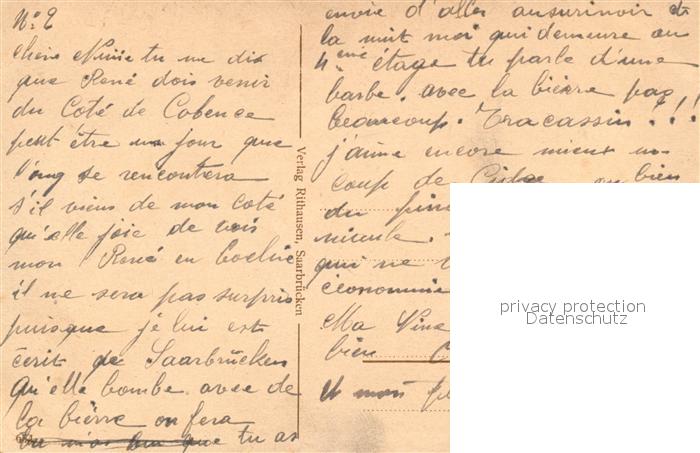 No 2
chère Ninie tu me dis
que René dois venir
du Coté de Cobence
peut être un jour que
l'ong se rencontrera
s'il viens de mon coté
qu'elle joie de voir
mon René en
il ne sera pas surpris
puisque je lui est
écrit de Saarbrücken
qu'elle bombe avec de
la bièrre on fera
que tu as
Verlag Rithausen, Saarbrücken
envie d'aller au
la nuit moi qui demeure au
4ème étage tu parle d'une
barbe. avec la bièrre pas
beaucoup. Tracassin!!!
j'aime encore mieux un
coup de ou bien
du
qui ne
économie
Ma Nine
bien
et mon
privacy protection
Datenschutz